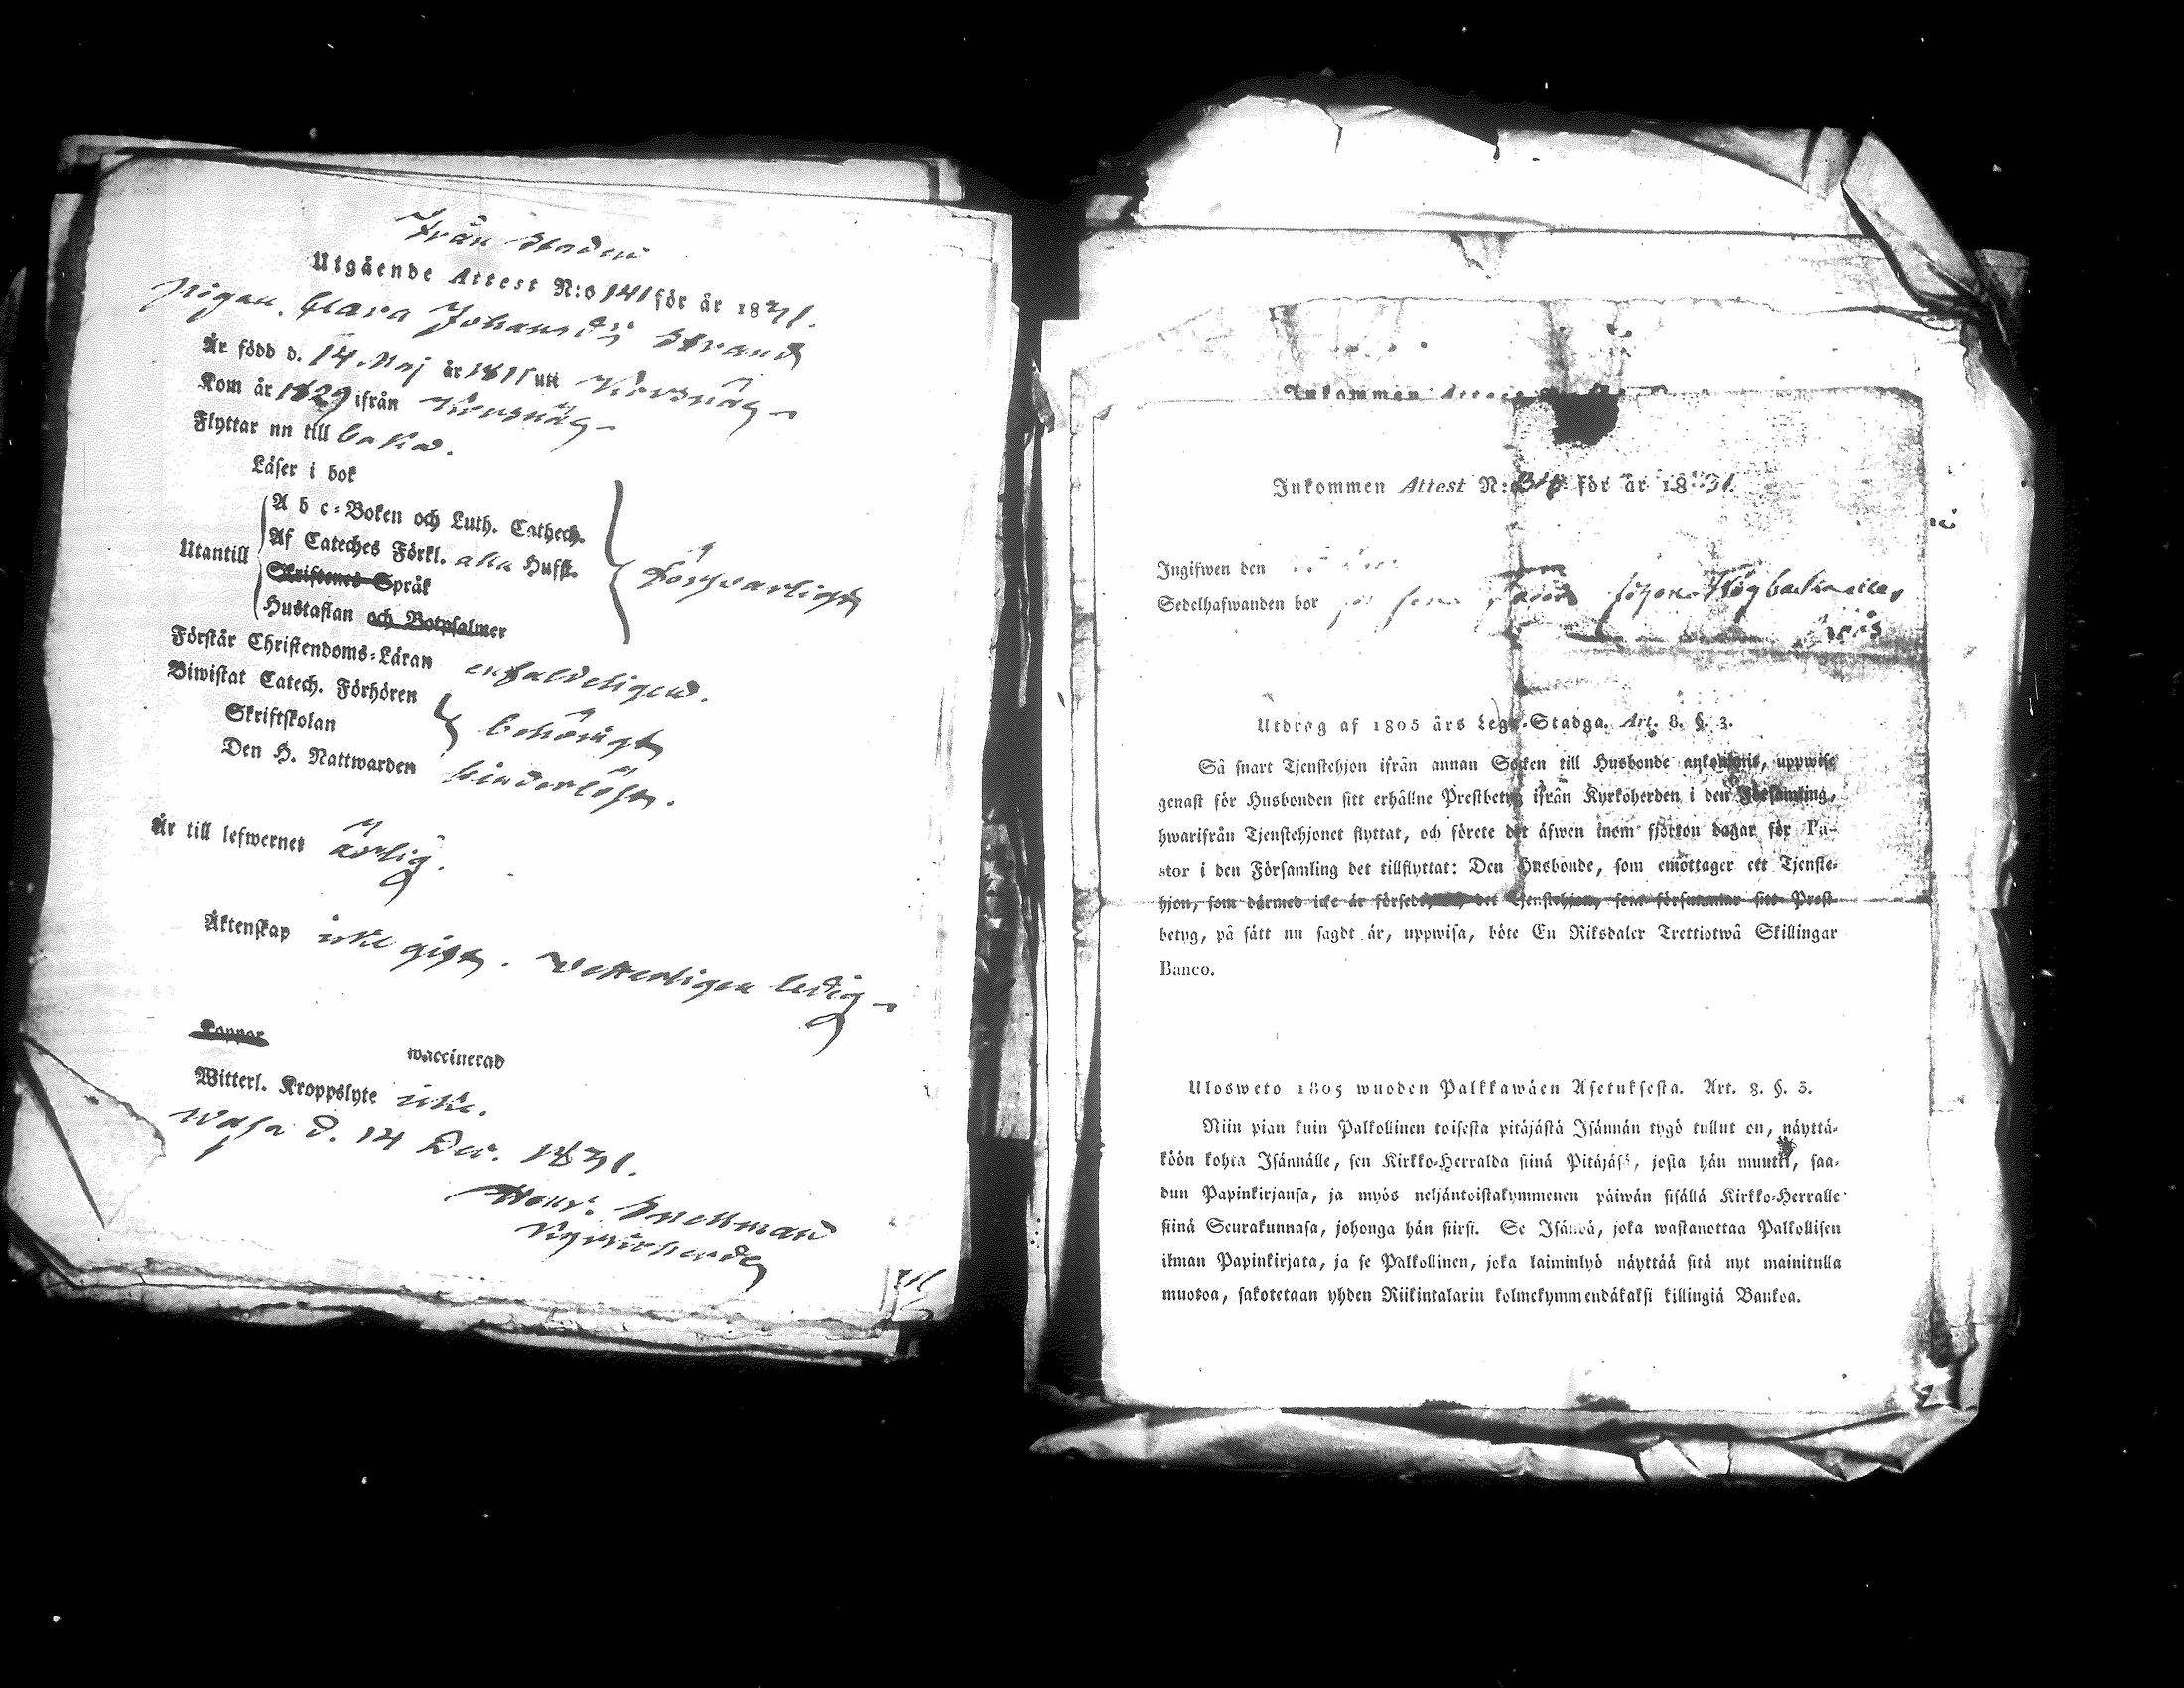 Från Staden
Utgående Attest N:o 141 för år 1831.
Pigan Clara Johansdr Strand
Är född d. 14 Maj år 1811 uti Korsnäs
Kom år 1829 ifrån Korsnäs
Flyttar nu till baka.
Läser i bok
A b c-Boken och Luth. Cathech.
Af Cateches Förkl. alla Hufst.
Utantill
Skriftenes Språk
försvarligt
Hustaflan och Botpsalmer
Förstår Christendoms-Läran enfaldeligen.
Biwistat Catech. Förhören
Skriftskolan
behörigt
Den H. Nattwarden hinderlöst.
Är till lefwernet ärlig.
Äktenskap icke gift. Vetterligen ledig
Koppor
waccinerad
Witterl. Kroppslyte icke.
Wasa d. 14 Dec. 1831.
Henr. Snellman
Kyrkoherde
Inkommen Attest
Inkommen Attest N:o för år 1831
Ingifwen den
Sedelhafwanden bor
Utdrag af 1805 års Lego-Stadga. Art. 8. §. 3.
Så snart Tjenstehjon ifrån annan Socken till Husbonde ankommit, uppwise
genast för Husbonden sitt erhållne Prestbetyg ifrån Kyrkoherden i den Församling,
hwarifrån Tjenstehjonet flyttat, och förete det äfwen inom fjorton dagar för Pa-
stor i den Församling det tillflyttat: Den Husbonde, som emottager ett Tjenste-
hjon, som därmed icke är försedt, det Tjenstehjon, som försummar sitt Prest-
betyg, på sätt nu sagdt är, uppwisa, böte En Riksdaler Trettiotwå Skillingar
Banco.
Ulosweto 1805 wuoden Palkkawäen Asetuksesta. Art. 8. §. 3.
Niin pian kuin Palkollinen toisesta pitäjästä Isännän tygö tullut on, näyttä-
köön kohta Isännälle, sen Kirkko-Herralda siinä Pitäjäsä, josta hän muutti, saa-
dun Papinkirjansa, ja myös neljäntoistakymmenen päiwän sisällä Kirkko-Herralle
siinä Seurakunnasa, johonga hän siirsi. Se Isändä, joka wastanottaa Palkollisen
ilman Papinkirjata, ja se Palkollinen, joka laiminlyö näyttää sitä nyt mainitulla
muotoa, sakotetaan yhden Riikintalarin kolmekymmendäkaksi killingiä Bankoa.